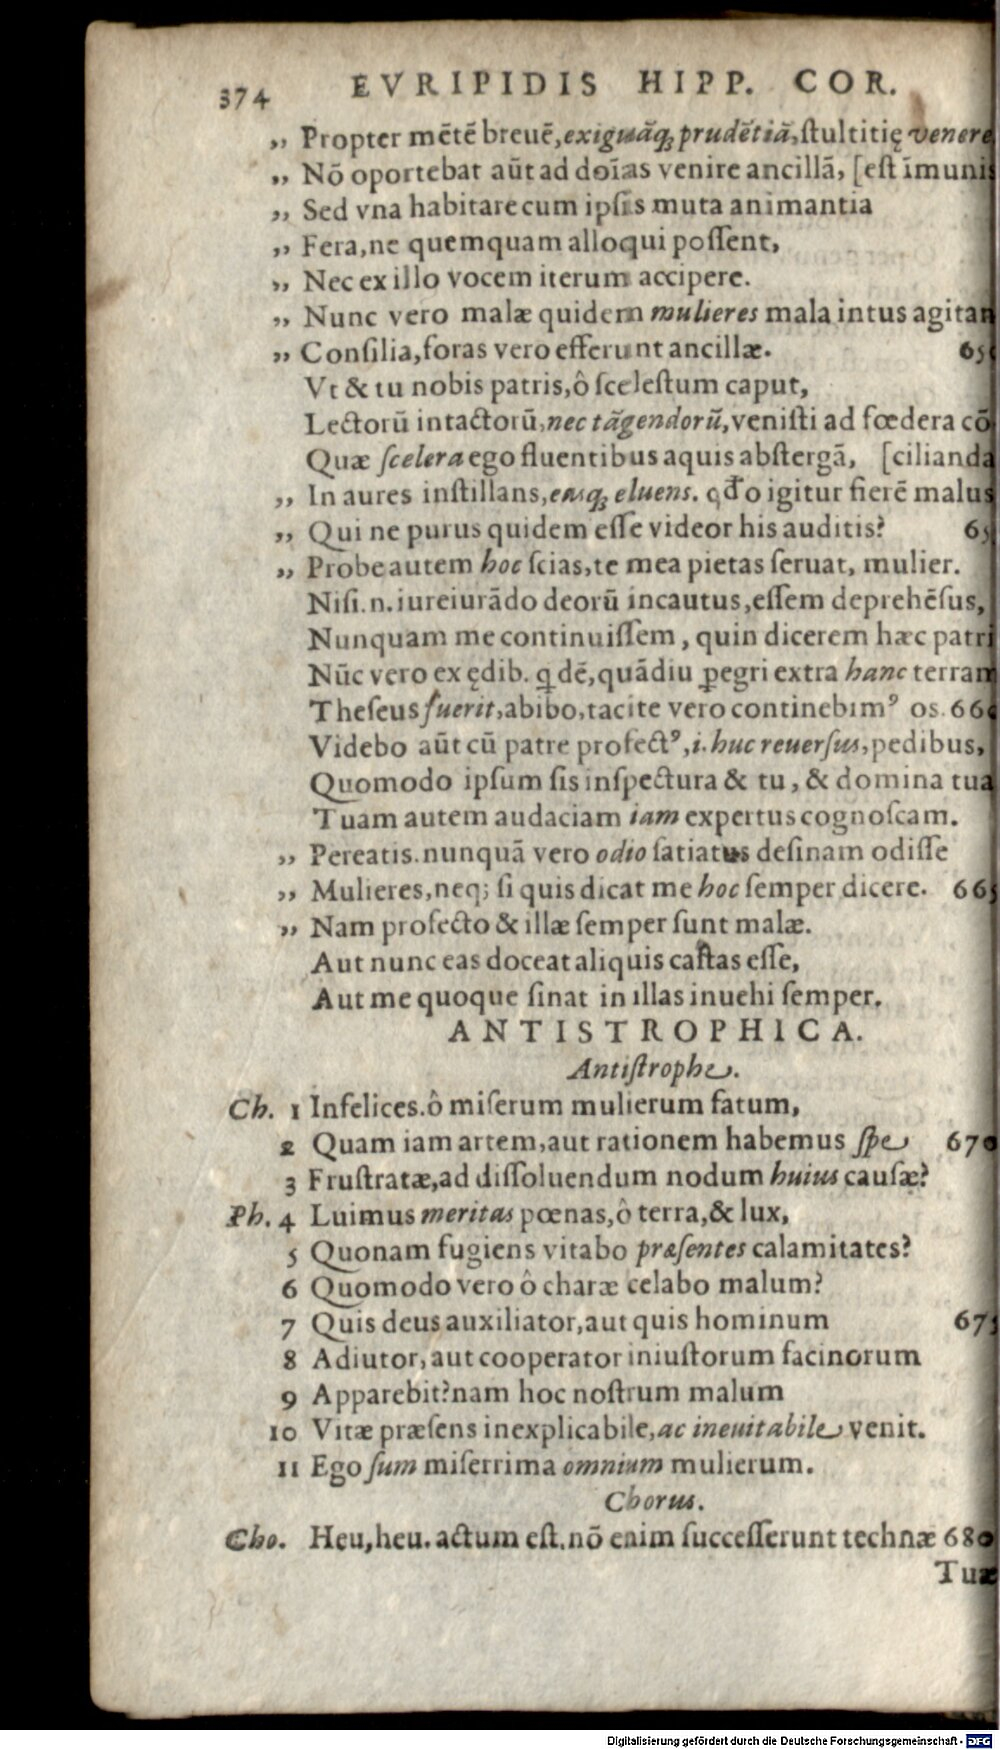 374 EVRIPIDIS HIPP. COR.
„ Propter mētē breuē, exiguāq; prudētiā, ſtultitię venere
„ Nō oportebat aūt ad doīas venire ancillā, [eſt īmunis
„ Sed vna habitare cum ipſis muta animantia
„ Fera, ne quemquam alloqui poſſent,
„ Nec ex illo vocem iterum accipere.
„ Nunc vero malæ quidem mulieres mala intus agitan
„ Conſilia, foras vero efferunt ancillæ. 65
Vt & tu nobis patris, ô ſceleſtum caput,
Lectorū intactorū, nec tāgendorū, veniſti ad fœdera cō
Quæ ſcelera ego fluentibus aquis abſtergā, [cilianda
„ In aures inſtillans, easq; eluens. qđo igitur fierē malus
„ Qui ne purus quidem eſſe videor his auditis? 65
„ Probe autem hoc ſcias, te mea pietas ſeruat, mulier.
Niſi .n. iureiurādo deorū incautus, eſſem deprehēſus,
Nunquam me continuiſſem, quin dicerem hæc patri
Nūc vero ex ędib. qdē, quādiu ꝑegri extra hanc terram
Theſeus fuerit, abibo, tacite vero continebimꝰ os. 660
Videbo aūt cū patre profectꝰ, i. huc reuerſus, pedibus,
Quomodo ipſum ſis inſpectura & tu, & domina tua
Tuam autem audaciam iam expertus cognoſcam.
„ Pereatis. nunquā vero odio ſatiatus deſinam odiſſe
„ Mulieres, neq; ſi quis dicat me hoc ſemper dicere. 665
„ Nam profecto & illæ ſemper ſunt malæ.
Aut nunc eas doceat aliquis caſtas eſſe,
Aut me quoque ſinat in illas inuehi ſemper.
ANTISTROPHICA.
Antiſtrophe.
Ch. 1 Infelices. ô miſerum mulierum fatum,
2 Quam iam artem, aut rationem habemus ſpe 670
3 Fruſtratæ, ad diſſoluendum nodum huius cauſæ?
Ph. 4 Luimus meritas pœnas, ô terra, & lux,
5 Quonam fugiens vitabo præſentes calamitates?
6 Quomodo vero ô charæ celabo malum?
7 Quis deus auxiliator, aut quis hominum 675
8 Adiutor, aut cooperator iniuſtorum facinorum
9 Apparebit? nam hoc noſtrum malum
10 Vitæ præſens inexplicabile, ac ineuitabile venit.
11 Ego ſum miſerrima omnium mulierum.
Chorus.
Cho. Heu, heu. actum eſt. nō enim ſucceſſerunt technæ 680
Tuæ
Digitalisierung gefördert durch die Deutsche Forschungsgemeinschaft - DFG